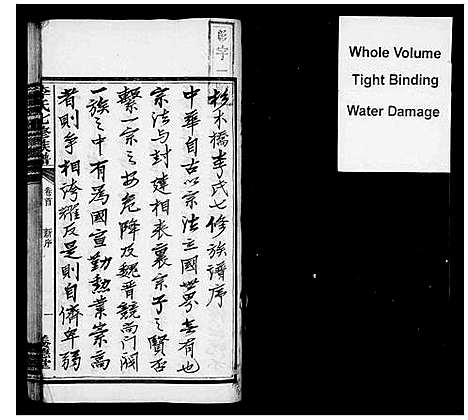 彰字一
杉木橋李氏七修族譜序
中華自古以宗法立國世界無有也
宗法與封建相表裏宗子之賢否
繫一宗之安危降及魏晉競尚門閥
一族之中有為國宣勤勲業崇高
者則爭相誇耀反是則自儕卑弱
李氏七修族譜
卷首
新序
一
Whole Volume
Tight Binding
Water Damage